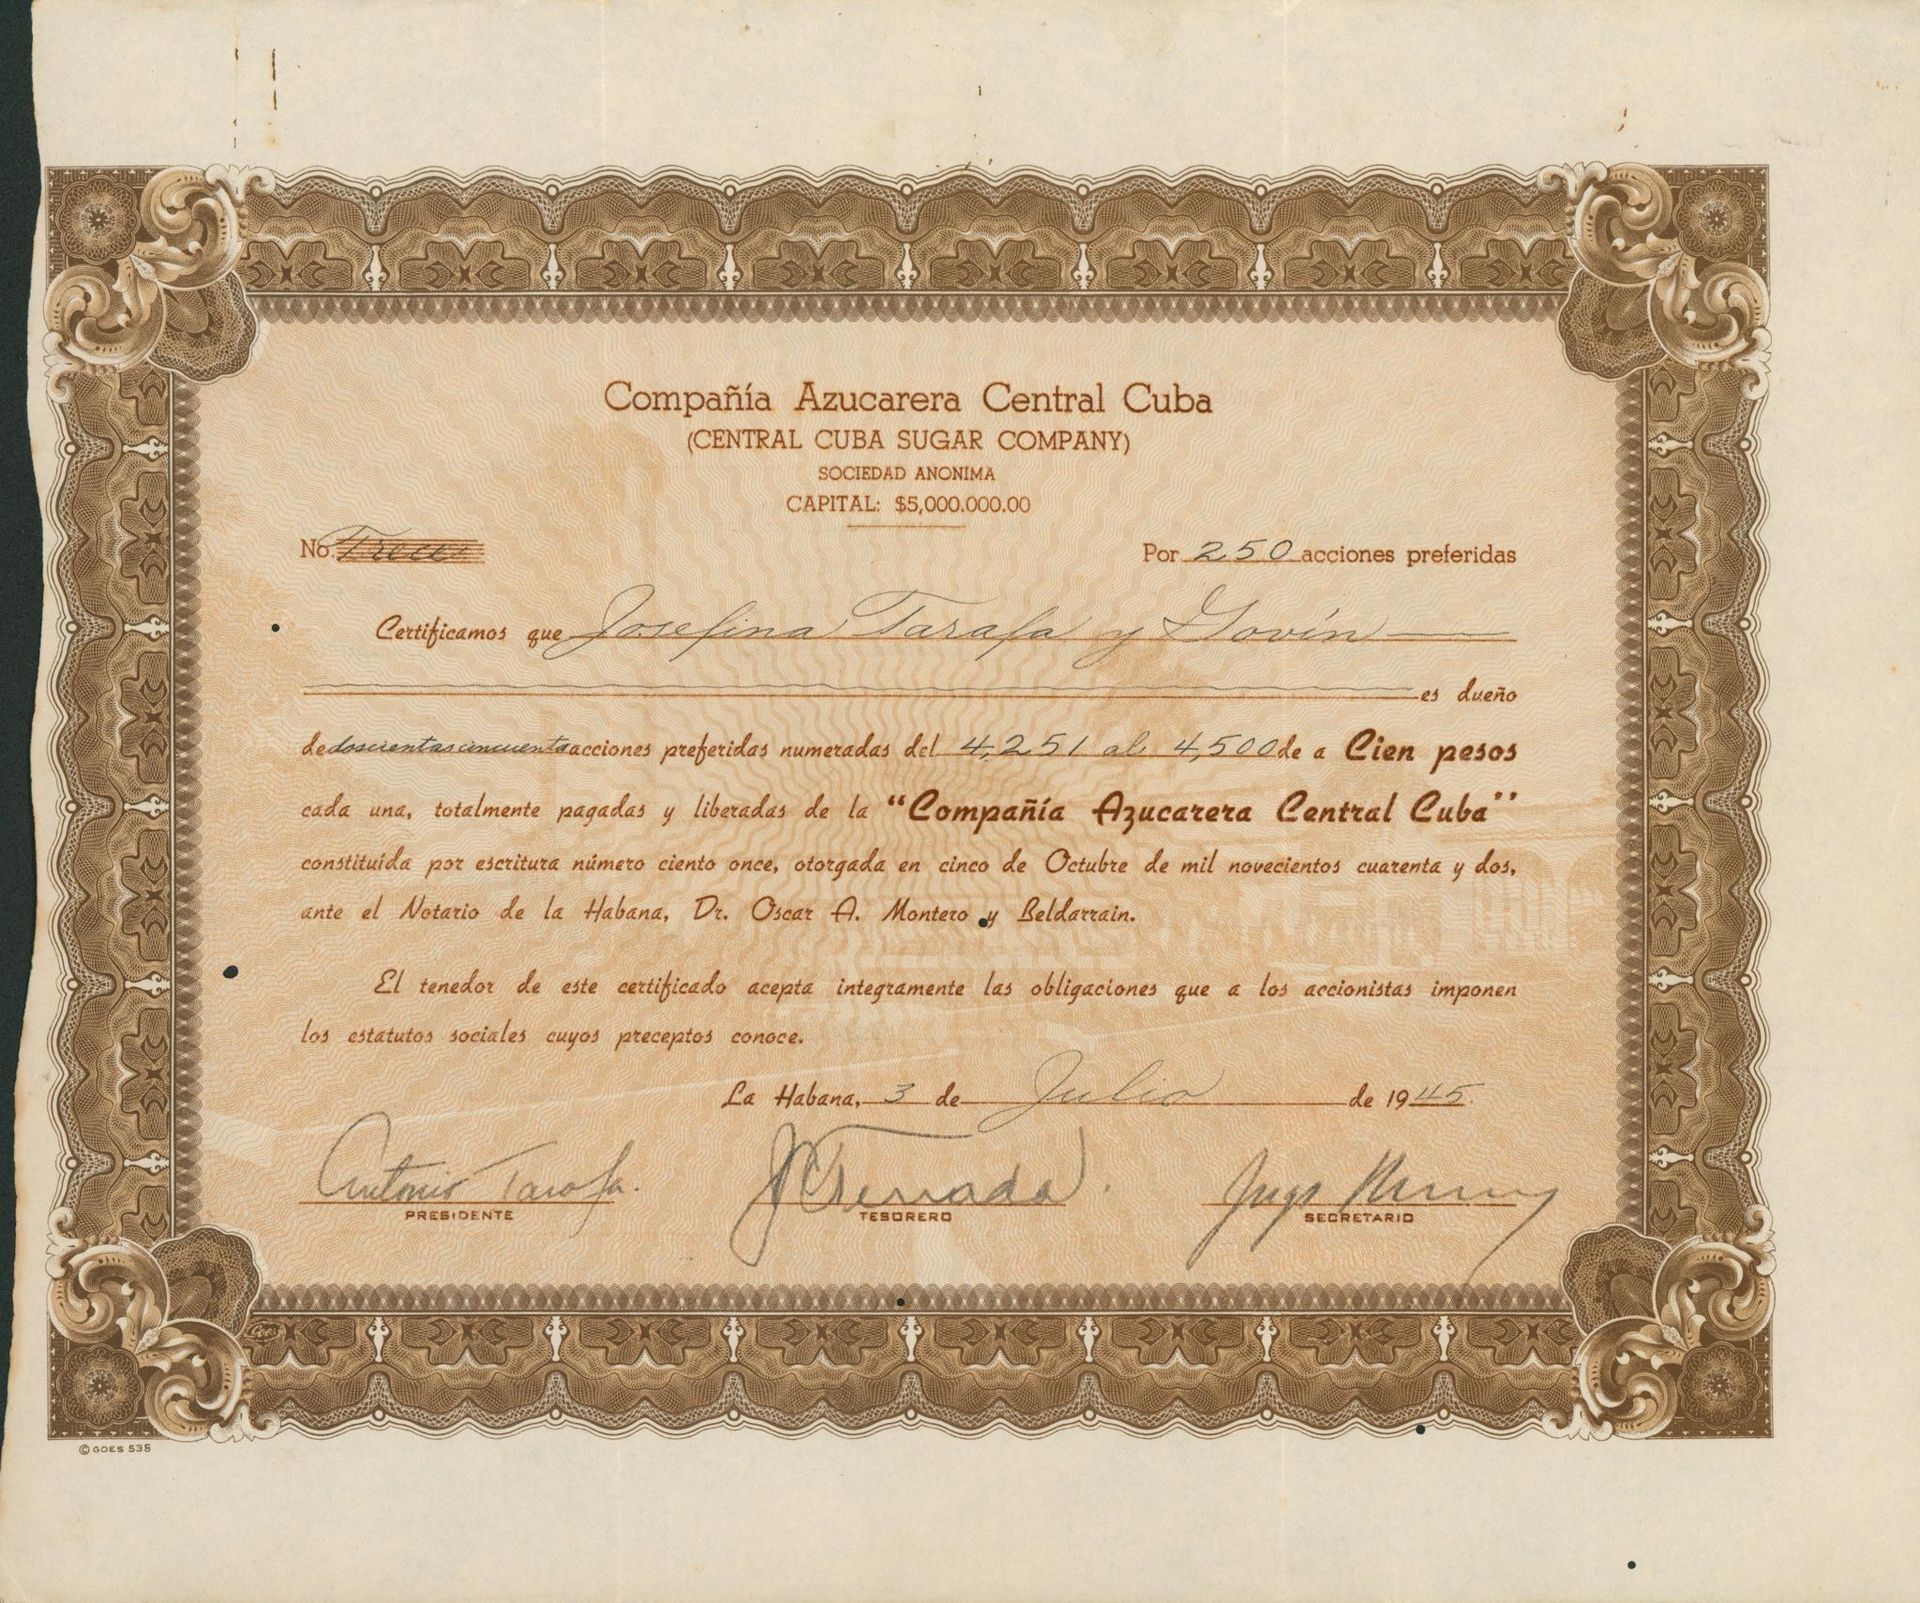 Compañía Azucarera Central Cuba
(CENTRAL CUBA SUGAR COMPANY)
SOCIEDAD ANONIMA
CAPITAL: $5,000.000.00
No. Trece Por 250 acciones preferidas
Certificamos que Josefina Tarafa y Govín
es dueño
de doscientas cincuenta acciones preferidas numeradas del 4,251 al 4,500 de a Cien pesos
cada una, totalmente pagadas y liberadas de la "Compañía Azucarera Central Cuba"
constituída por escritura número ciento once, otorgada en cinco de Octubre de mil novecientos cuarenta y dos,
ante el Notario de la Habana, Dr. Oscar A. Montero y Beldarrain.
El tenedor de este certificado acepta integramente las obligaciones que a los accionistas imponen
los estatutos sociales cuyos preceptos conoce.
La Habana, 3 de Julio de 1945.
Antonio Tarafa.
PRESIDENTE TESORERO SECRETARIO
Goes
© GOES 535